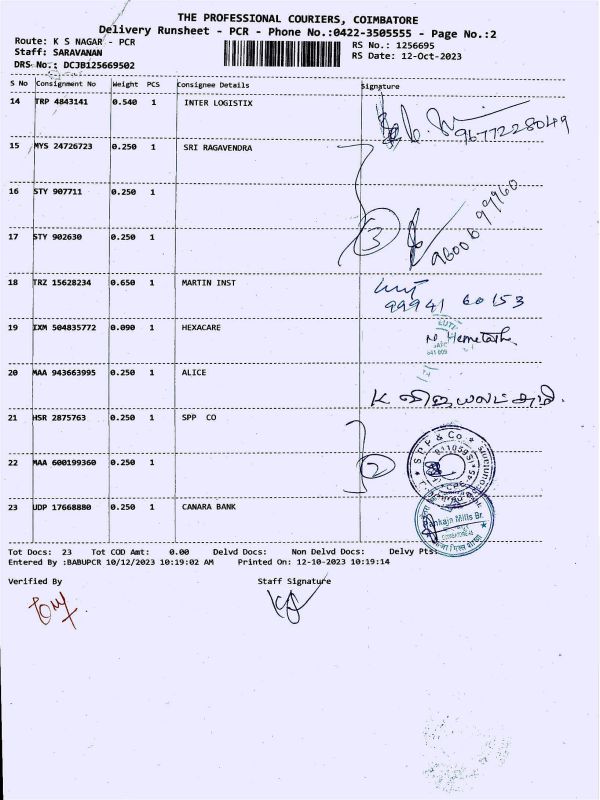 THE PROFESSIONAL COURIERS, COIMBATORE
Delivery Runsheet - PCR - Phone No.:0422-3505555 - Page No.:2
Route: K S NAGAR - PCR
RS No.: 1256695
Staff: SARAVANAN
RS Date: 12-Oct-2023
DRS No.: DCJB125669502
S No Consignment No Weight PCS Consignee Details Signature
14 TRP 4843141 0.540 1 INTER LOGISTIX
9677228049
15 MYS 24726723 0.250 1 SRI RAGAVENDRA
16 STY 907711 0.250 1
3
9600699960
17 STY 902630 0.250 1
18 TRZ 15628234 0.650 1 MARTIN INST
99941 60153
19 IXM 504835772 0.090 1 HEXACARE
20 MAA 943663995 0.250 1 ALICE
21 HSR 2875763 0.250 1 SPP CO
SPP & Co.
22 MAA 600199360 0.250 1
2
23 UDP 17668880 0.250 1 CANARA BANK
Pankaja Mills Br.
Tot Docs: 23 Tot COD Amt: 0.00 Delvd Docs: Non Delvd Docs: Delvy Pts:
Entered By :BABUPCR 10/12/2023 10:19:02 AM Printed On: 12-10-2023 10:19:14
Verified By Staff Signature